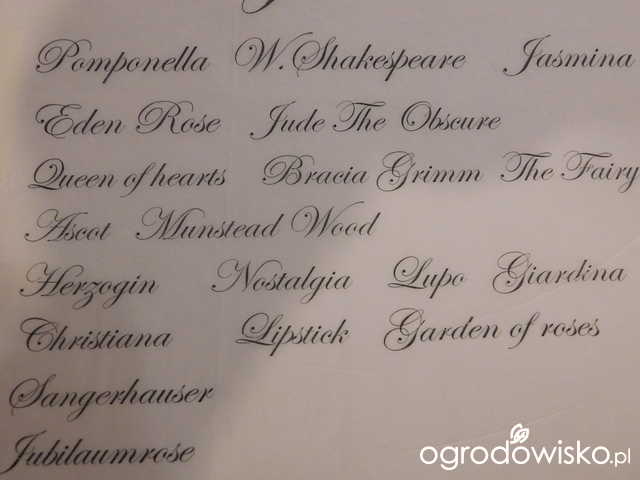 Pomponella W. Shakespeare Jasmina
Eden Rose Jude The Obscure
Queen of hearts Bracia Grimm The Fairy
Ascot Munstead Wood
Herzogin Nostalgia Lupo Giardina
Christiana Lipstick Garden of roses
Sangerhauser
Jubilaumrose
ogrodowisko.pl